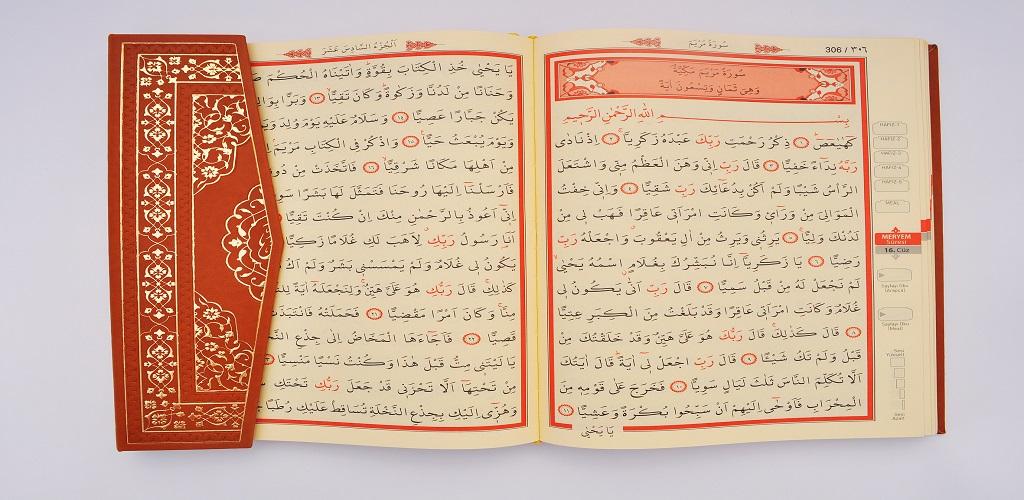 سُورَةُ مَرْيَمَ
306 / ٣٠٦
سُورَةُ مَرْيَمَ مَكِّيَّةٌ
وَهِيَ ثَمَانٍ وَتِسْعُونَ اٰيَةً
بِسْمِ اللّٰهِ الرَّحْمٰنِ الرَّحِيمِ
كٓهٰيٰعٓصٓ ۝١ ذِكْرُ رَحْمَتِ رَبِّكَ عَبْدَهُ زَكَرِيَّا ۝٢ اِذْ نَادٰى
رَبَّهُ نِدَٓاءً خَفِيًّا ۝٣ قَالَ رَبِّ اِنّ۪ي وَهَنَ الْعَظْمُ مِنّ۪ي وَاشْتَعَلَ
الرَّأْسُ شَيْبًا وَلَمْ اَكُنْ بِدُعَٓائِكَ رَبِّ شَقِيًّا ۝٤ وَاِنّ۪ي خِفْتُ
الْمَوَالِيَ مِنْ وَرَٓاء۪ي وَكَانَتِ امْرَاَت۪ي عَاقِرًا فَهَبْ ل۪ي مِنْ
لَدُنْكَ وَلِيًّا ۝٥ يَرِثُن۪ي وَيَرِثُ مِنْ اٰلِ يَعْقُوبَ وَاجْعَلْهُ رَبِّ
رَضِيًّا ۝٦ يَا زَكَرِيَّٓا اِنَّا نُبَشِّرُكَ بِغُلَامٍ اسْمُهُ يَحْيٰى
لَمْ نَجْعَلْ لَهُ مِنْ قَبْلُ سَمِيًّا ۝٧ قَالَ رَبِّ اَنّٰى يَكُونُ ل۪ي
غُلَامٌ وَكَانَتِ امْرَاَت۪ي عَاقِرًا وَقَدْ بَلَغْتُ مِنَ الْكِبَرِ عِتِيًّا
۝٨ قَالَ كَذٰلِكَ قَالَ رَبُّكَ هُوَ عَلَيَّ هَيِّنٌ وَقَدْ خَلَقْتُكَ مِنْ
قَبْلُ وَلَمْ تَكُ شَيْـًٔا ۝٩ قَالَ رَبِّ اجْعَلْ ل۪ٓي اٰيَةً قَالَ اٰيَتُكَ
اَلَّا تُكَلِّمَ النَّاسَ ثَلٰثَ لَيَالٍ سَوِيًّا ۝١٠ فَخَرَجَ عَلٰى قَوْمِه۪ مِنَ
الْمِحْرَابِ فَاَوْحٰٓى اِلَيْهِمْ اَنْ سَبِّحُوا بُكْرَةً وَعَشِيًّا ۝١١
يَا يَحْيٰى
HAFIZ-1
HAFIZ-2
HAFIZ-3
HAFIZ-4
HAFIZ-5
MEAL
MERYEM
Sûresi
16. Cüz
Sayfayı Oku
(Arapça)
Sayfayı Oku
(Meal)
Sesi
Yükselt
Sesi
Azalt
اَلْجُزْءُ السَّادِسَ عَشَرَ
يَا يَحْيٰى خُذِ الْكِتَابَ بِقُوَّةٍ وَاٰتَيْنَاهُ الْحُكْمَ
وَحَنَانًا مِنْ لَدُنَّا وَزَكٰوةً وَكَانَ تَقِيًّا ۝١٣ وَبَرًّا
يَكُنْ جَبَّارًا عَصِيًّا ۝١٤ وَسَلَامٌ عَلَيْهِ يَوْمَ وُلِدَ
وَيَوْمَ يُبْعَثُ حَيًّا ۝١٥ وَاذْكُرْ فِي الْكِتَابِ مَرْيَمَ
مِنْ اَهْلِهَا مَكَانًا شَرْقِيًّا ۝١٦ فَاتَّخَذَتْ مِنْ
فَاَرْسَلْنَٓا اِلَيْهَا رُوحَنَا فَتَمَثَّلَ لَهَا بَشَرًا
اِنّ۪ٓي اَعُوذُ بِالرَّحْمٰنِ مِنْكَ اِنْ كُنْتَ تَقِيًّا
اَنَا۬ رَسُولُ رَبِّكِ لِاَهَبَ لَكِ غُلَامًا زَكِيًّا
يَكُونُ ل۪ي غُلَامٌ وَلَمْ يَمْسَسْن۪ي بَشَرٌ وَلَمْ
كَذٰلِكِ قَالَ رَبُّكِ هُوَ عَلَيَّ هَيِّنٌ وَلِنَجْعَلَهُٓ اٰيَةً
مِنَّا وَكَانَ اَمْرًا مَقْضِيًّا ۝٢١ فَحَمَلَتْهُ
قَصِيًّا ۝٢٢ فَاَجَٓاءَهَا الْمَخَاضُ اِلٰى جِذْعِ
يَا لَيْتَن۪ي مِتُّ قَبْلَ هٰذَا وَكُنْتُ نَسْيًا مَنْسِيًّا ۝٢٣
مِنْ تَحْتِهَٓا اَلَّا تَحْزَن۪ي قَدْ جَعَلَ رَبُّكِ تَحْتَكِ
وَهُزّ۪ٓي اِلَيْكِ بِجِذْعِ النَّخْلَةِ تُسَاقِطْ عَلَيْكِ رُطَبًا